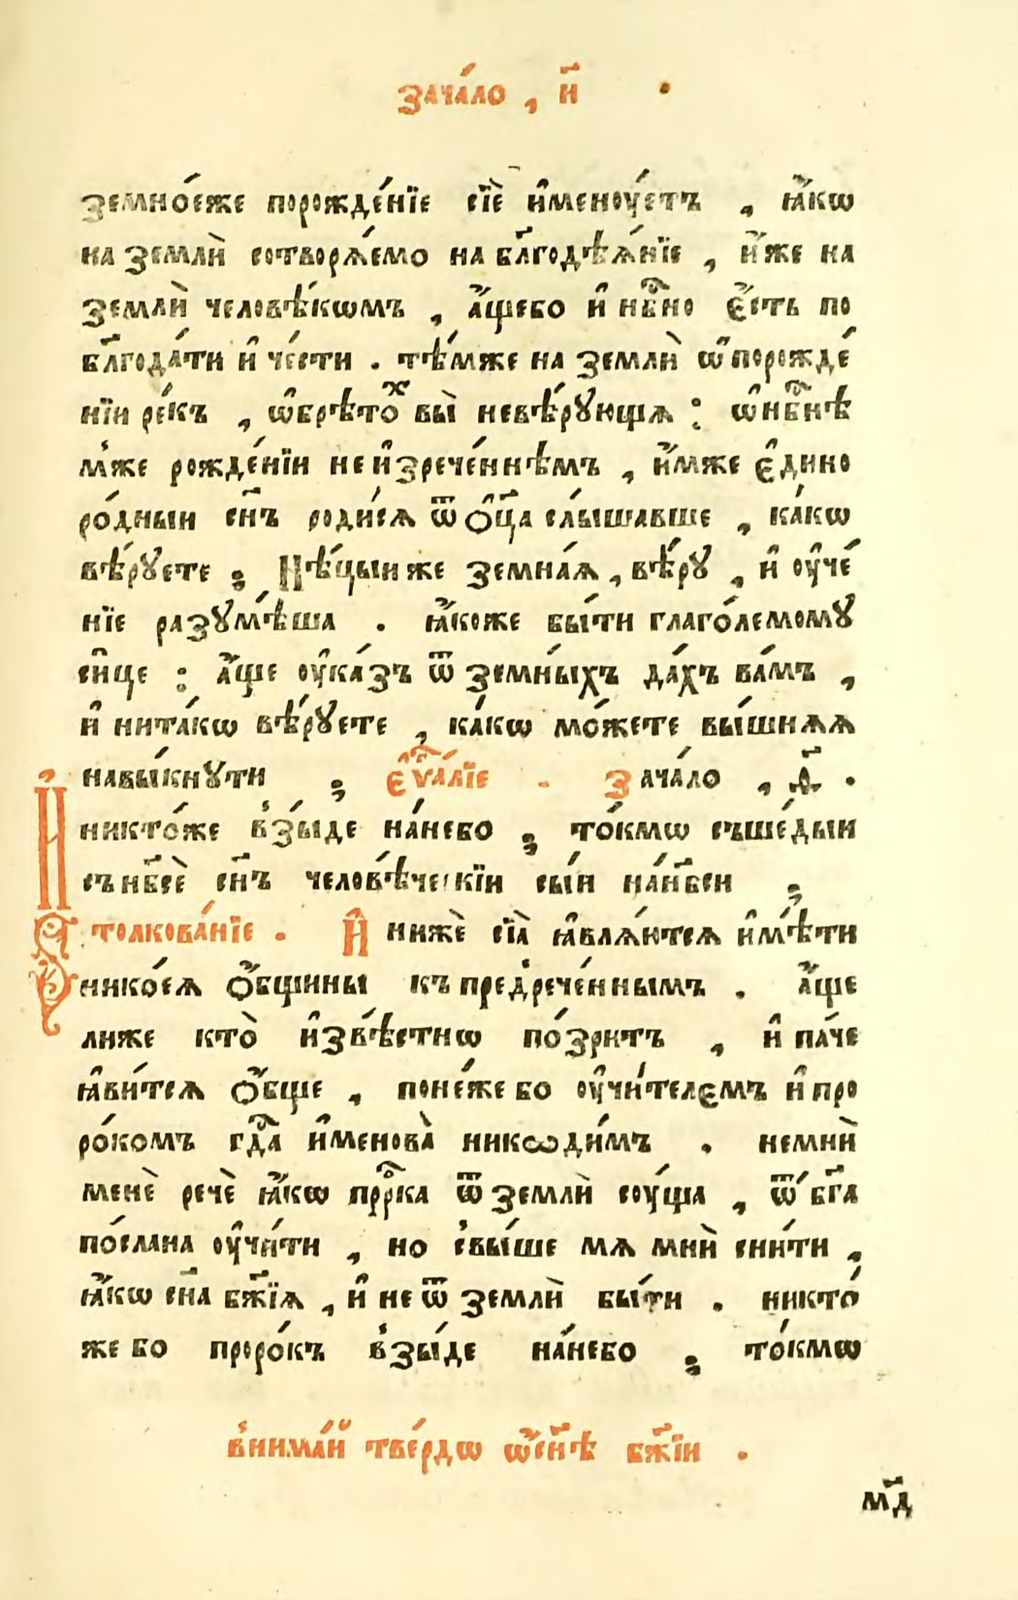 зача́ло , и҃
земно́еже порожде́нїе сїѐ и҆менꙋ́етъ , ꙗ҆́кѡ
на землѝ сотворѧ́емо на бл҃годѣѧ́нїе , и҆́же на
землѝ человѣ́кѡмъ , а҆́щебо и҆ нб҃но є҆́сть по
бл҃года́ти и҆ че́сти . тѣ́мже на землѝ ѡ҆ порожде́
нїи ре́къ , ѡ҆брѣ́тох вы̀ невѣ́рꙋющꙗ : ѡ҆ нб҃нѣ
мже рожде́нїи не и҆зрече́ннѣмъ , и҆́мже є҆дино
ро́дныи сн҃ъ роди́сѧ ѿ ѻ҆ц҃а слы́шавше , ка́кѡ
вѣ́рꙋете ; Нѣ́цыи же земна́ѧ , вѣ́рꙋ , и҆ ᲂу҆че́
нїе разꙋмѣ́ша . ꙗ҆́коже бы́ти глаго́лемомꙋ
си҆́це : а҆́ще ᲂу҆ка́зъ ѿ земны́хъ да́хъ ва́мъ ,
и҆ нита́кѡ вѣ́рꙋете , ка́кѡ мо́жете вы́шнѧѧ
навы́кнꙋти ; є҆ѵⷢ҇а́лїе . зача́ло , ѳ҃ .
И҆никто́же взы́де на́небо , то́кмѡ съше́дыи
съ нб҃сѐ сн҃ъ человѣ́ческїи сы́и на́нб҃си ;
толкова́нїе . И҆ нижѐ сїѧ̀ ꙗ҆влѧ́ютсѧ и҆мѣ́ти
никое́ѧ ѻ҆́бщины къ предрече́ннымъ . а҆́ще
лиже кто̀ и҆звѣ́стнѡ по́зритъ , и҆ па́че
ꙗ҆ви́тсѧ ѻ҆́бще , поне́же бо ᲂу҆чи́телємъ и҆ про
ро́комъ гд҇а и҆менова̀ никѡди́мъ . немнѝ
менѐ речѐ ꙗ҆́кѡ прⷪ҇рка ѿ землѝ сꙋ́ща , ѿ бг҃а
по́слана ᲂу҆чи́ти , но свы́ше мѧ мнѝ сни́ти ,
ꙗ҆́кѡ сн҃а бж҃їѧ , и҆ не ѿ землѝ бы́ти . никто́
же бо проро́къ взы́де на́небо ; то́кмѡ
внима́й тве́рдѡ ѡ҆ сн҃ѣ бж҃їи .
мд҃